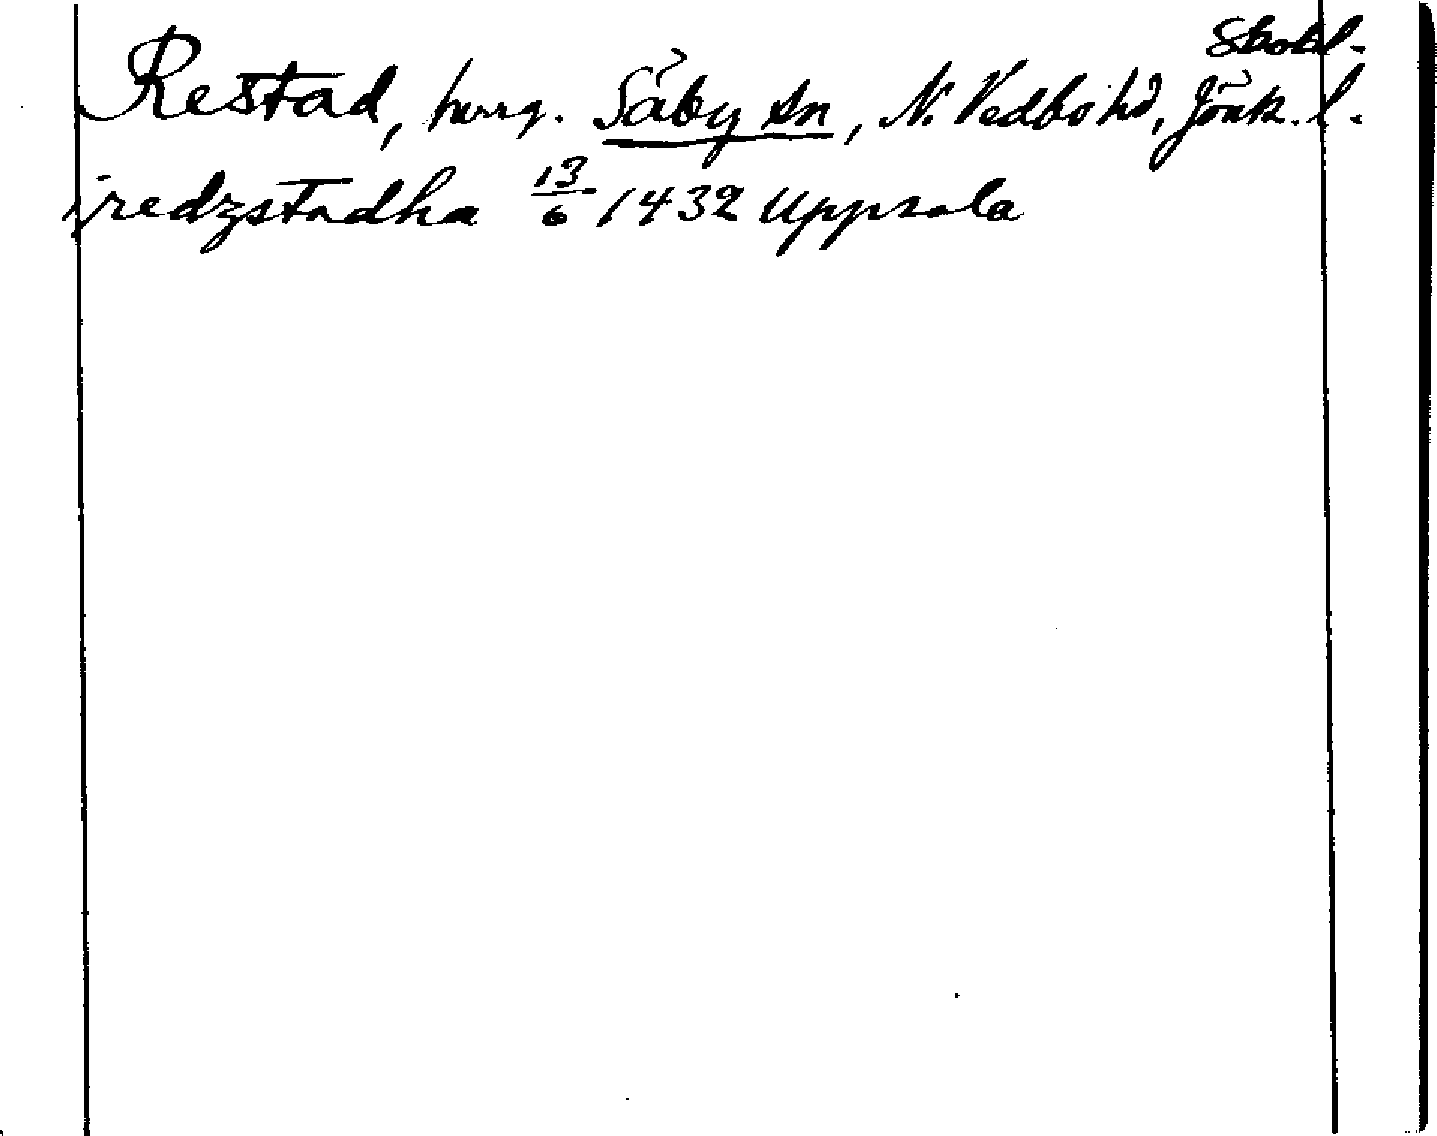 Skokl.
Restad, herrg. Säby sn, N. Vedbo hd, Jönk. l.
i redzstadha 13/6 1432 Uppsala